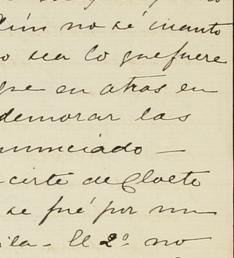 aún no sé cuanto
o sea lo que fuere
que en atras en
demorar las
nunciado —
cirte de Cloete
se fué por un
ila - El 2º no